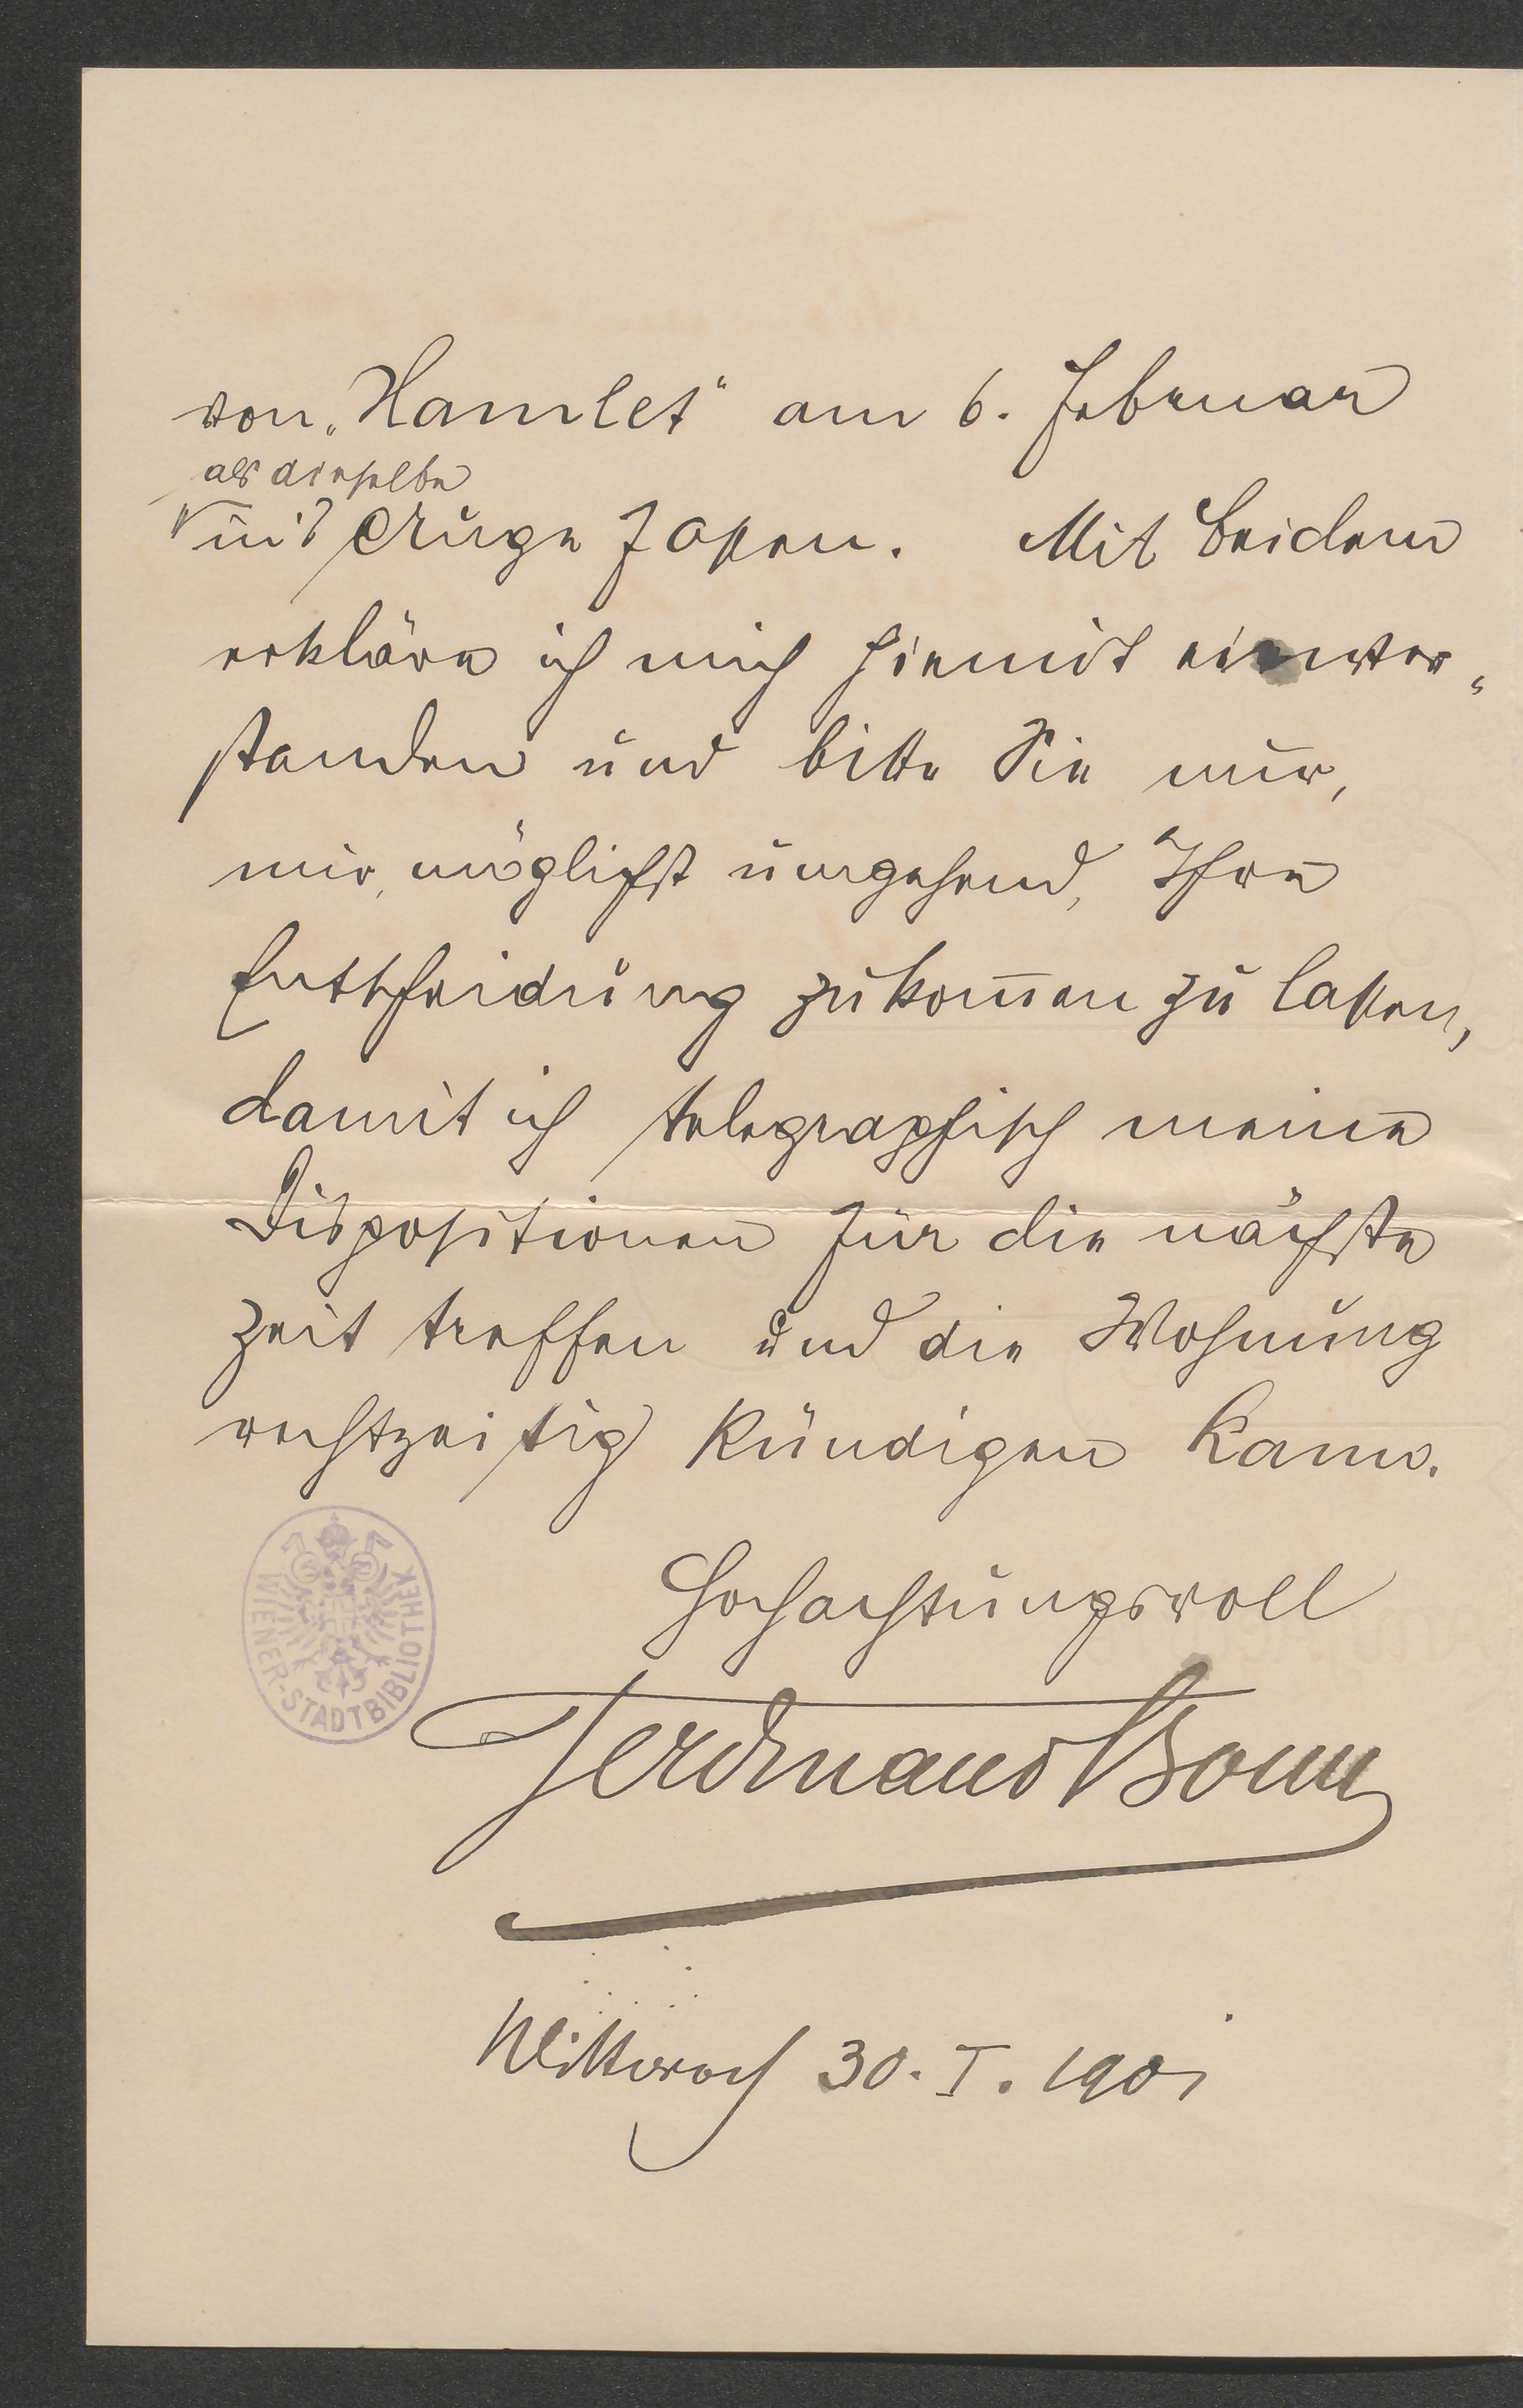 von „Hamlet“ am 6. Februar
als dieselbe
ins Auge fassen. Mit beidem
erkläre ich mich hiemit einver„
standen und bitte Sie nur,
mir, möglichst umgehend, Ihre
Entscheidung zukom̅en zu lassen,
damit ich telegraphisch meine
Dispositionen für die nächste
Zeit treffen und die Wohnung
rechtzeitig kündigen kann.
Hochachtungsvoll
Ferdinand Bonn
Mittwoch 30. I. 1901
WIENER-STADTBIBLIOTHEK